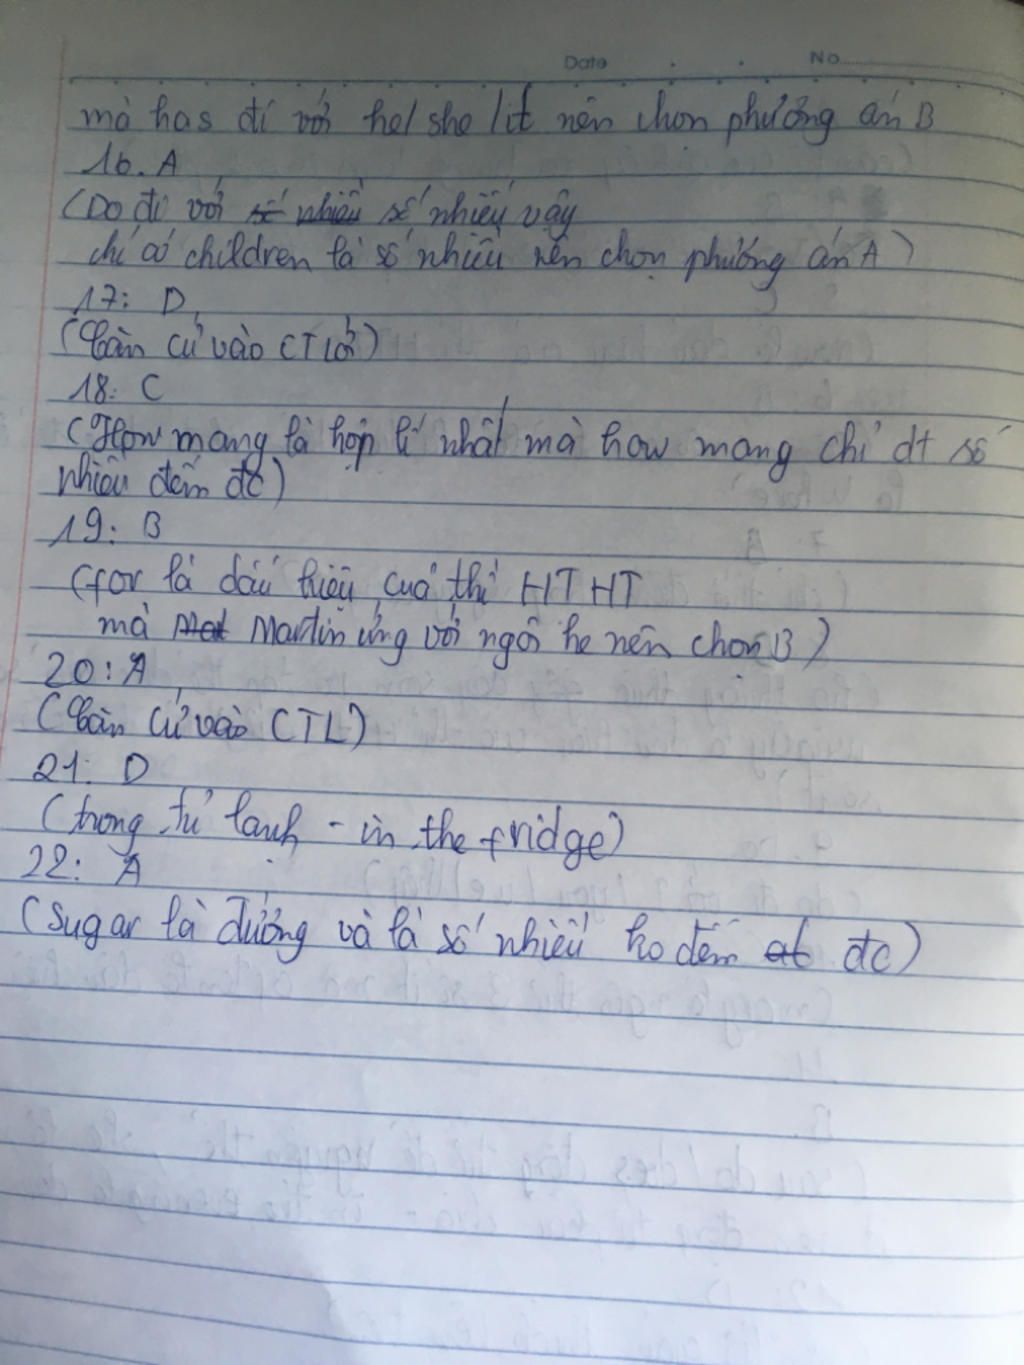 Date No
mà has đi với he/she/it nên chọn phương án B
16. A
(Do đi với số nhiều số nhiều vậy
chỉ có children là số nhiều nên chọn phương án A)
17: D
(Căn cứ vào CT
18: C
(How many là hợp lí nhất mà how many chỉ dt số
nhiều đếm đc)
19: B
(for là dấu hiệu của thì HTHT
mà Mat Martin ứng với ngôi he nên chọn B)
20: A
(Căn cứ vào CTL)
21: D
(trong tủ lạnh - in the fridge)
22: A
(Sugar là đường và là số nhiều ko đếm đc)